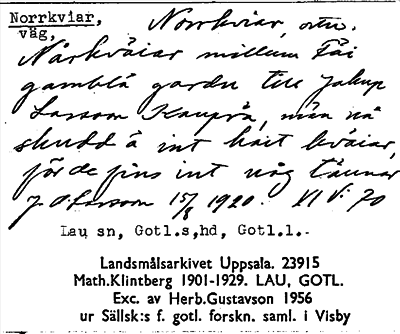 Norrkviar,
väg,
Norrkviar, ortn.
Nårkväiar millum Fåi
gamblä gardn till Jakup
Larsson Kauprå, män nå
skudd ä int hait kväiar,
för de fins int någ täunar
J. O. Larsson 15/8 1920. XI V: 70
Lau sn, Gotl.s,hd, Gotl.l.
Landsmålsarkivet Uppsala. 23915
Math.Klintberg 1901-1929. LAU, GOTL.
Exc. av Herb.Gustavson 1956
ur Sällsk:s f. gotl. forskn. saml. i Visby